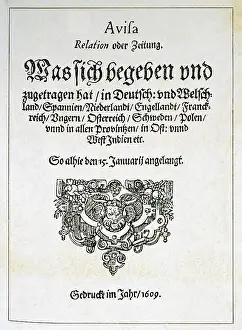 Avisa
Relation oder Zeitung.
Was sich begeben vnd
zugetragen hat / in Deutsch: vnd Welsch-
land / Spannien / Niederlandt / Engellandt / Franck-
reich / Vngern / Osterreich / Schweden / Polen /
vnnd in allen Provintzen / in Ost: vnnd
West Indien etc.
So alhie den 15. Januarij angelangt.
Gedruckt im Jahr / 1609.